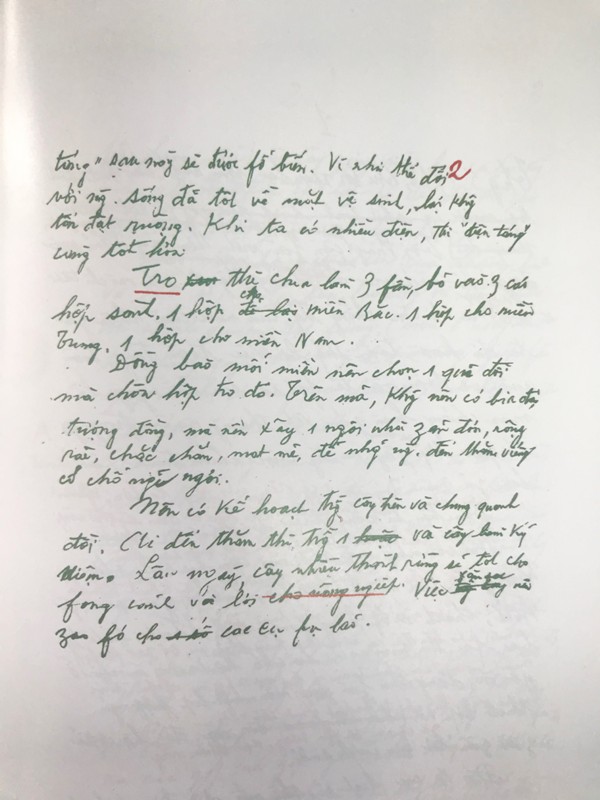 táng" sau này sẽ được fổ biến. Vì như thế đối 2
với ng. sống đã tốt về mặt vệ sinh, lại khg
tốn đất ruộng. Khi ta có nhiều điện, thì "điện táng"
càng tốt hơn.
Tro thì chia làm 3 fần, bỏ vào 3 cái
hộp sành, 1 hộp cho miền Bắc. 1 hộp cho miền
Trung, 1 hộp cho miền Nam.
Đồng bào mỗi miền nên chọn 1 quả đồi
mà chôn hộp tro đó. Trên mả, khg nên có bia đá
tượng đồng, mà nên xây 1 ngôi nhà zản đơn, rộng
rãi, chắc chắn, mát mẻ, để nhg ng. đến thăm viếng
có chỗ nghỉ ngơi.
Nên có kế hoạch trg cây trên và chung quanh
đồi. Ai đến thăm thì trg 1 vài cây làm kỷ
niệm. Lâu ngày, cây nhiều thành rừng sẽ tốt cho
fong cảnh và lợi cho nông ngiệp. Việc săn sóc nên
zao fó cho các cụ fụ lão.